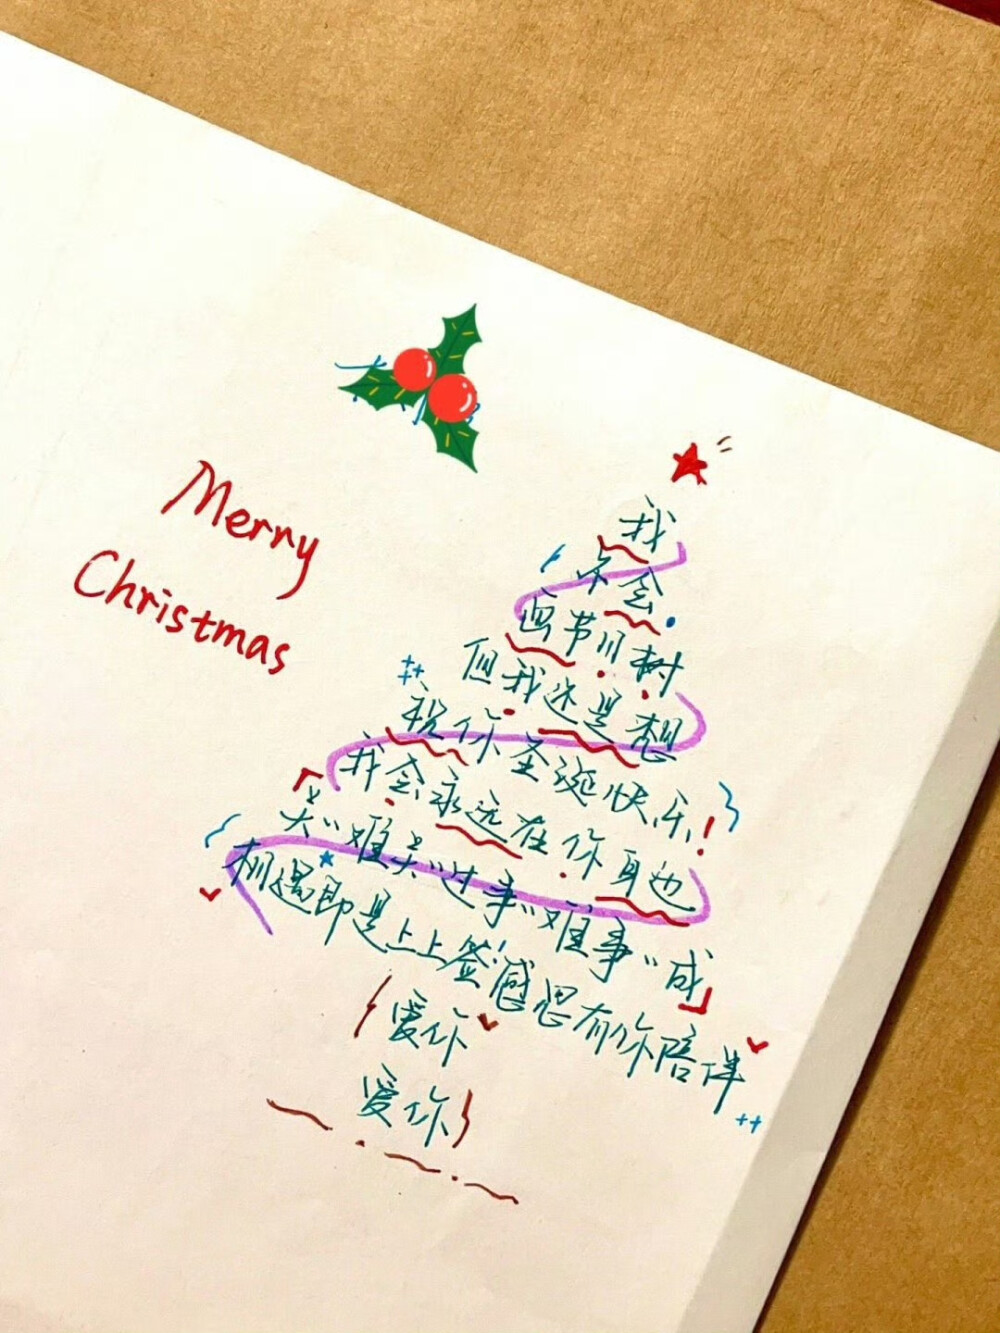 Merry
Christmas
我
不会
画节日树
但我还是想
祝你圣诞快乐!
我会永远在你身边
「关〃难关〃过事〃难事〃成」
相遇即是上上签感恩有你陪伴
爱你
爱你